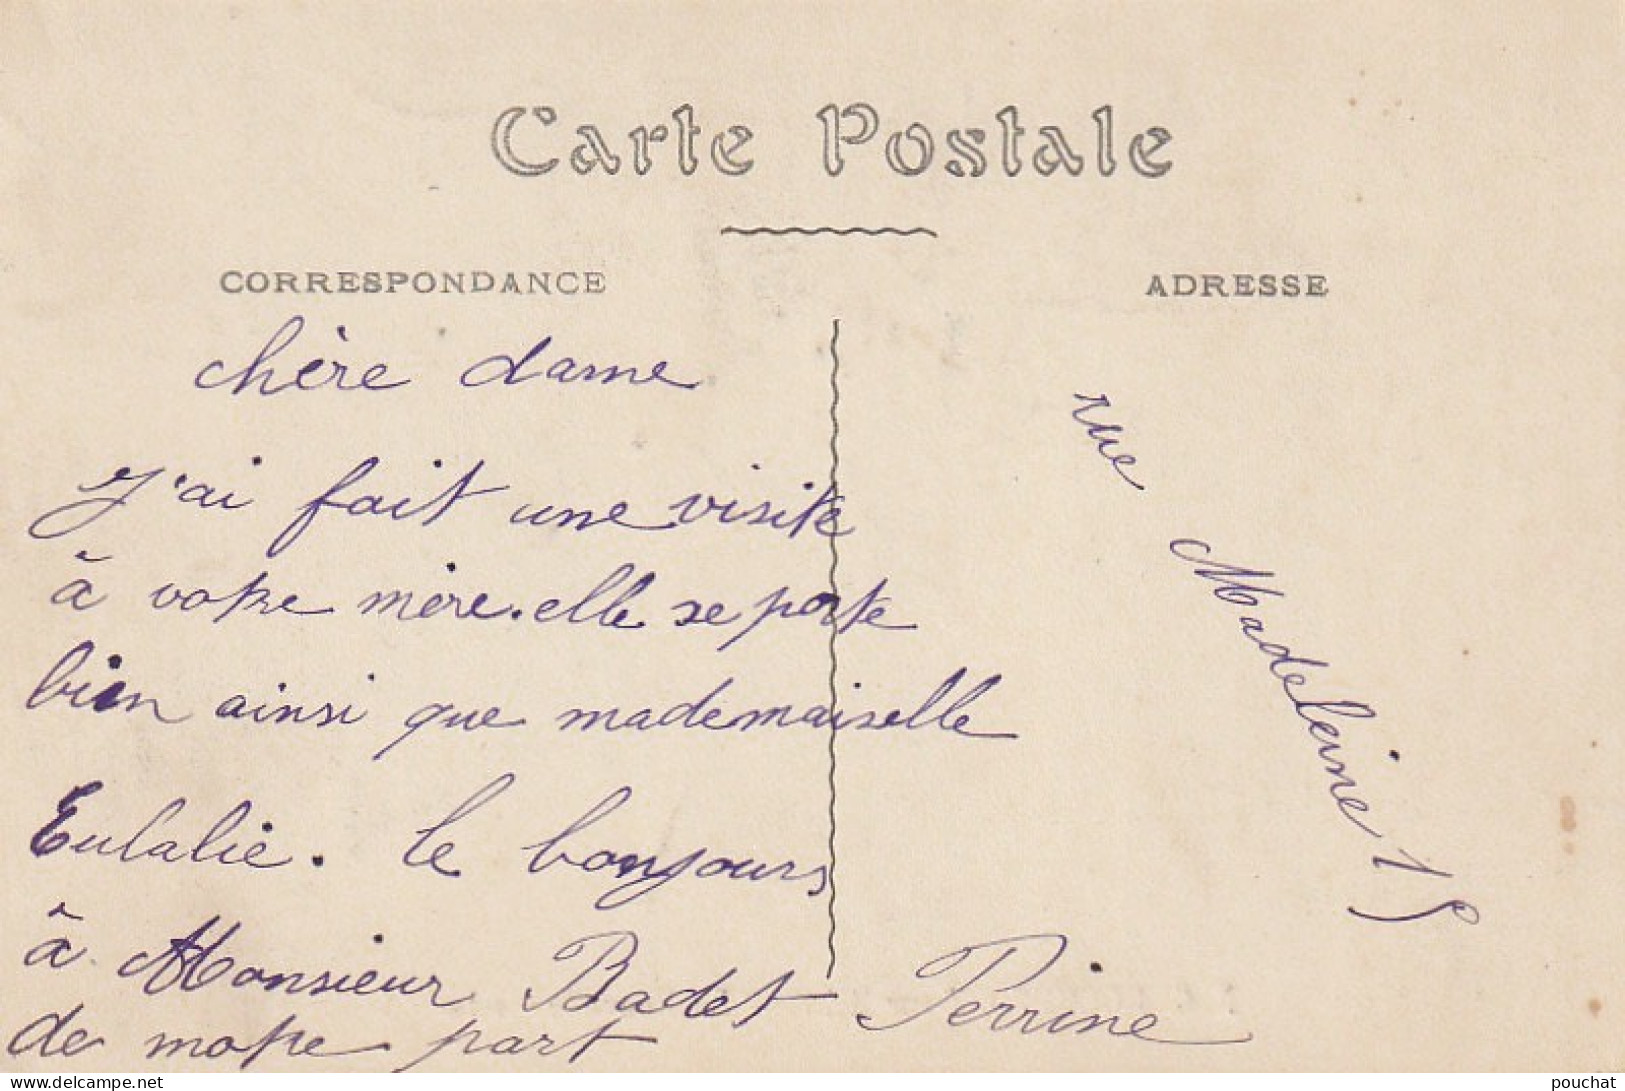 Carte Postale
CORRESPONDANCE
ADRESSE
chère dame
J'ai fait une visite
à votre mère. elle se porte
bien ainsi que mademaiselle
Eulalie. le bonjours
à Monsieur Badet
de motre part
Perrine
rue Madeleine 15
www.delcampe.net
pouchat